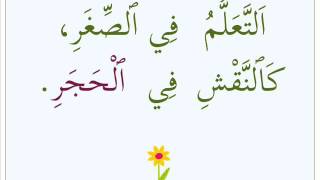 اَلتَّعَلُّمُ فِي ٱلصِّغَرِ،
كَٱلنَّقْشِ فِي ٱلْحَجَرِ.